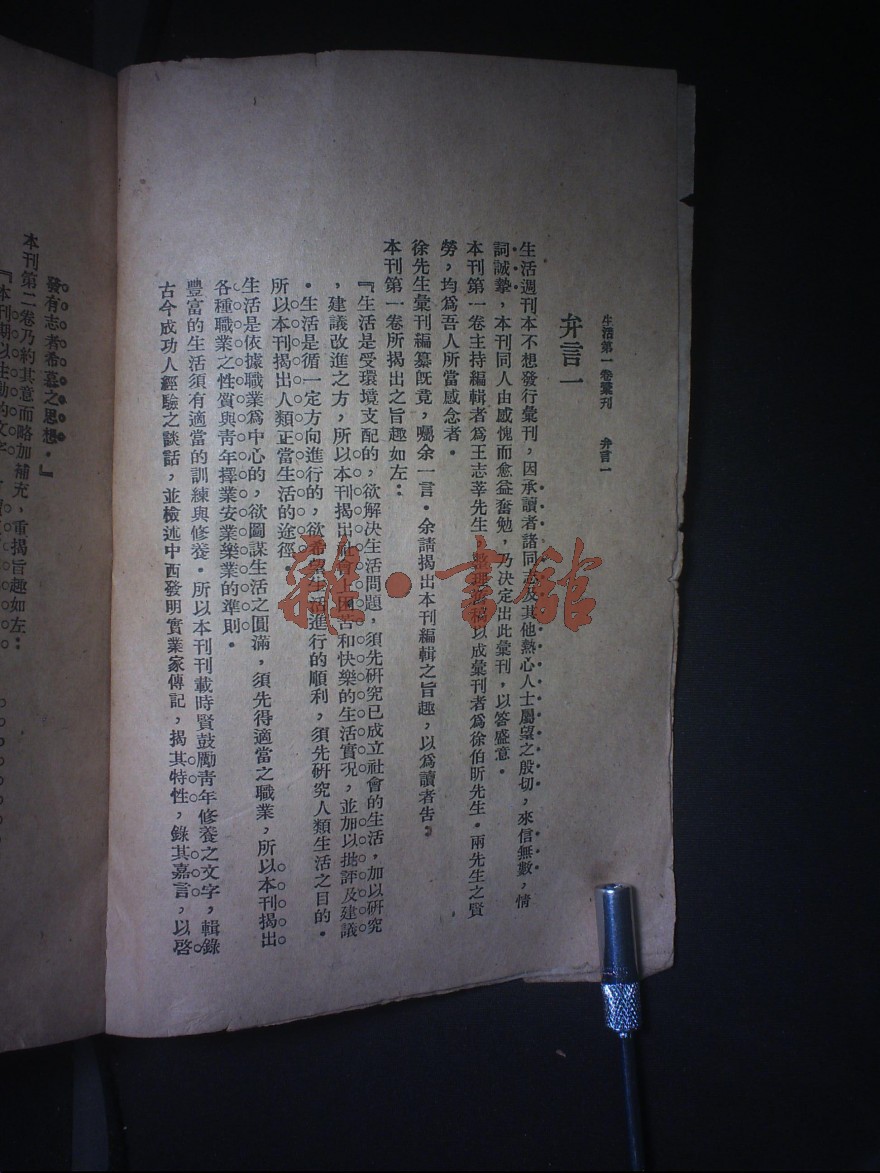 生活第一卷彙刊　弁言一
弁言一
生活週刊本不想發行彙刊，因承讀者諸同志及其他熱心人士屬望之殷切，來信無數，情
詞誠摯，本刊同人由感愧而愈益奮勉，乃決定出此彙刊，以答盛意。
本刊第一卷主持編輯者爲王志莘先生，整理舊稿以成彙刊者爲徐伯昕先生。兩先生之賢
勞，均爲吾人所當感念者。
徐先生彙刊編纂旣竟，囑余一言。余請揭出本刊編輯之旨趣，以爲讀者告。
本刊第一卷所揭出之旨趣如左：
『生活是受環境支配的，欲解決生活問題，須先研究已成立社會的生活，加以研究
，建議改進之方，所以本刊揭出社會上困苦和快樂的生活實况，並加以批評及建議
。生活是循一定方向進行的，欲希望生活進行的順利，須先研究人類生活之目的。
所以本刊揭出人類正當生活的途徑。
生活是依據職業爲中心的，欲圖謀生活之圓滿，須先得適當之職業，所以本刊揭出
各種職業之性質與靑年擇業安業樂業的準則。
豐富的生活須有適當的訓練與修養。所以本刊刊載時賢鼓勵靑年修養之文字，輯錄
古今成功人經驗之談話，並檢述中西發明實業家傳記，揭其特性，錄其嘉言，以啓
發有志者希慕之思想。』
本刊第二卷乃約其意而略加補充，重揭旨趣如左：
『本刊期以生動的文字
雜·書館